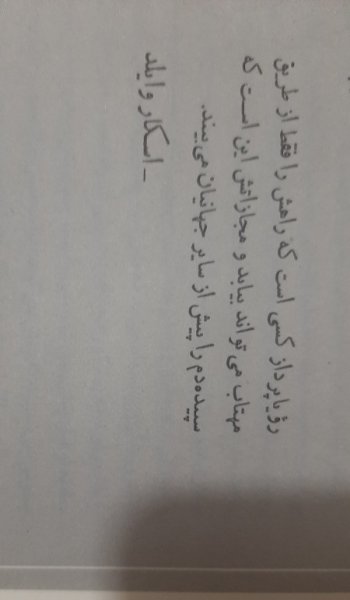 رؤیاپرداز کسی است که راهش را فقط از طریق
مهتاب می‌تواند بیابد و مجازاتش این است که
سپیده‌دم را پیش از سایر جهانیان می‌بیند.
_اسکار وایلد